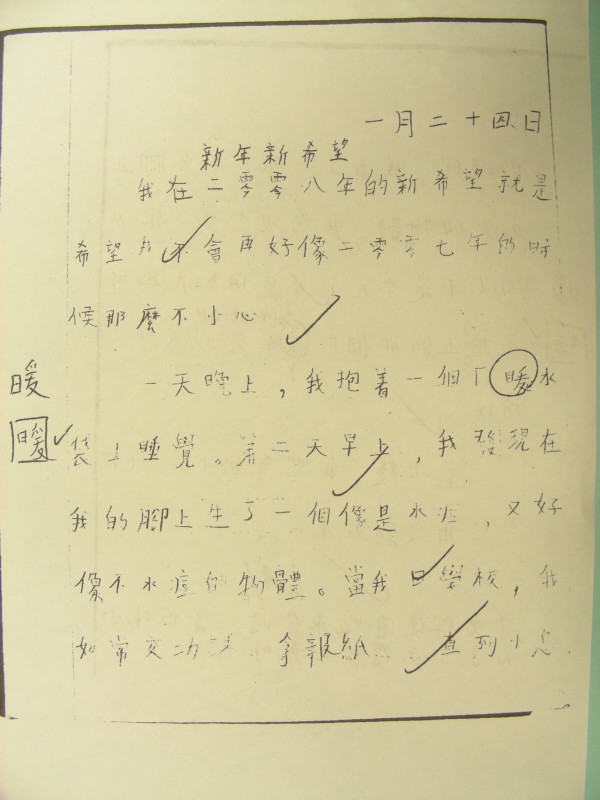 一月二十四日
新年新希望
我在二零零八年的新希望就是
希望我不會再好像二零零七年的時
候那麼不小心
一天晚上，我抱着一個「暖水
暖
袋」睡覺。第二天早上，我發現在
暖
我的腳上生了一個像是水泡，又好
像不水痘的物體。當我回學校，我
如常交功課 拿報紙 直到小息